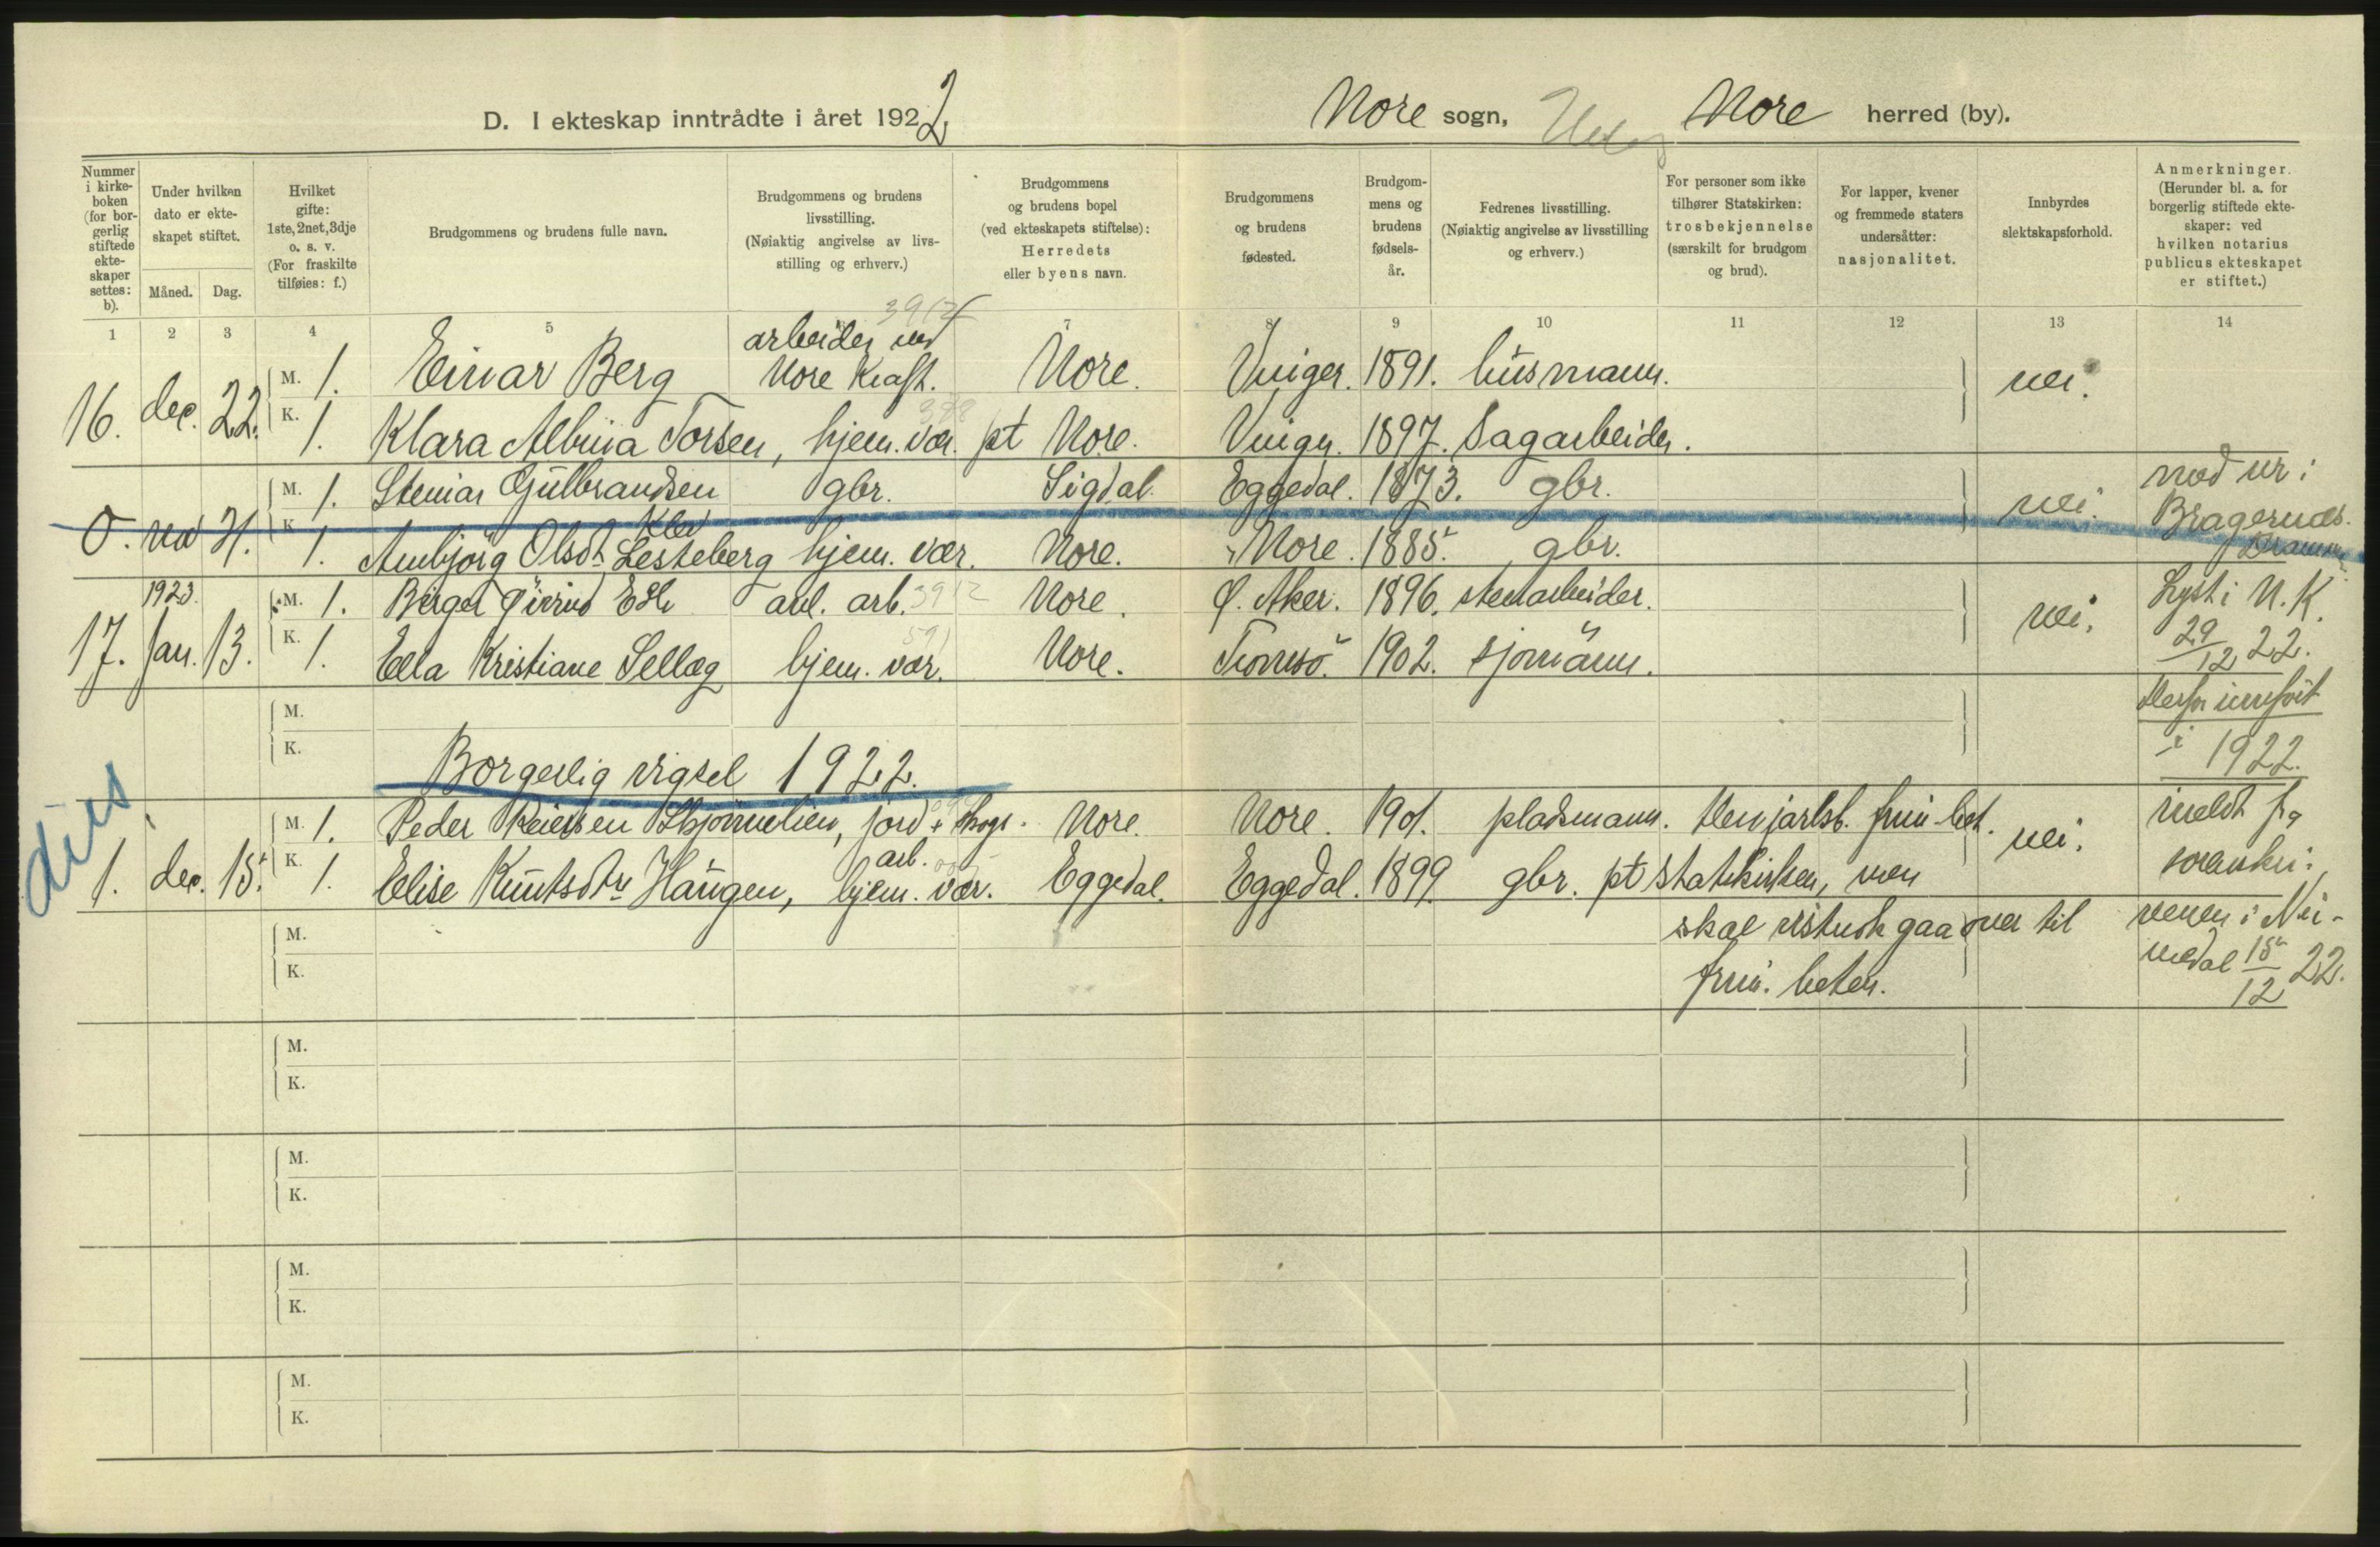 D. I ekteskap inntrådte i året 1922
Nore sogn, Nore herred (by).
Nummer i kirkeboken (for borgerlig stiftede ekteskaper settes: b).
Under hvilken dato er ekteskapet stiftet.
Måned. Dag.
Hvilket gifte: 1ste, 2net, 3dje o. s. v. (For fraskilte tilføies: f.)
Brudgommens og brudens fulle navn.
Brudgommens og brudens livsstilling. (Nøiaktig angivelse av livsstilling og erhverv.)
Brudgommens og brudens bopel (ved ekteskapets stiftelse): Herredets eller byens navn.
Brudgommens og brudens fødested.
Brudgommens og brudens fødselsår.
Fedrenes livsstilling. (Nøiaktig angivelse av livsstilling og erhverv.)
For personer som ikke tilhører Statskirken: trosbekjennelse (særskilt for brudgom og brud).
For lapper, kvener og fremmede staters undersåtter: nasjonalitet.
Innbyrdes slektskapsforhold.
Anmerkninger. (Herunder bl. a. for borgerlig stiftede ekteskaper: ved hvilken notarius publicus ekteskapet er stiftet.)
1 2 3 4 5 7 8 9 10 11 12 13 14
3912
arbeider ved
16. dec. 22. M. 1. Einar Berg Nore Kraft. Nore. Vinger. 1891. husmann. nei.
K. 1. Klara Albina Torsen, hjem. vær. pt Nore. Vinger. 1897. Sagarbeider.
0. nov 21. M. 1. Steinar Gulbrandsen gbr. Sigdal Eggedal. 1873. gbr. nei.
Klev
K. 1. Ambjörg Olsdt. Lesteberg hjem. vær. Nore. Nore. 1885. gbr.
Bragernæs.
Drammen
1923.
17. Jan. 13. M. 1. Birger Edh anl. arb. 3912 Nore. Ø. Aker. 1896. stenarbeider. nei.
K. 1. Ella Kristiane Sellæg hjem. vær. Nore. Tromsö. 1902. sjömann.
Lyst i N. K.
29/12 22.
Derfor innfört
i 1922.
M.
K.
Borgerlig vigsel 1922.
1. dec. 15. M. 1. Peder Reiersen Skjönnelien, jord + skogs. Nore. Nore. 1901. pladsmann. Den jarlsb. frim. bet. nei.
arb.
K. 1. Elise Knutsdtr Haugen, hjem. vær. Eggedal. Eggedal. 1899. gbr. pt statskirken, men
skal gaa over til
frim. beten.
meldt fra
sorenskri-
veren i Nu-
medal 15/12 22.
M.
K.
M.
K.
M.
K.
M.
K.
M.
K.